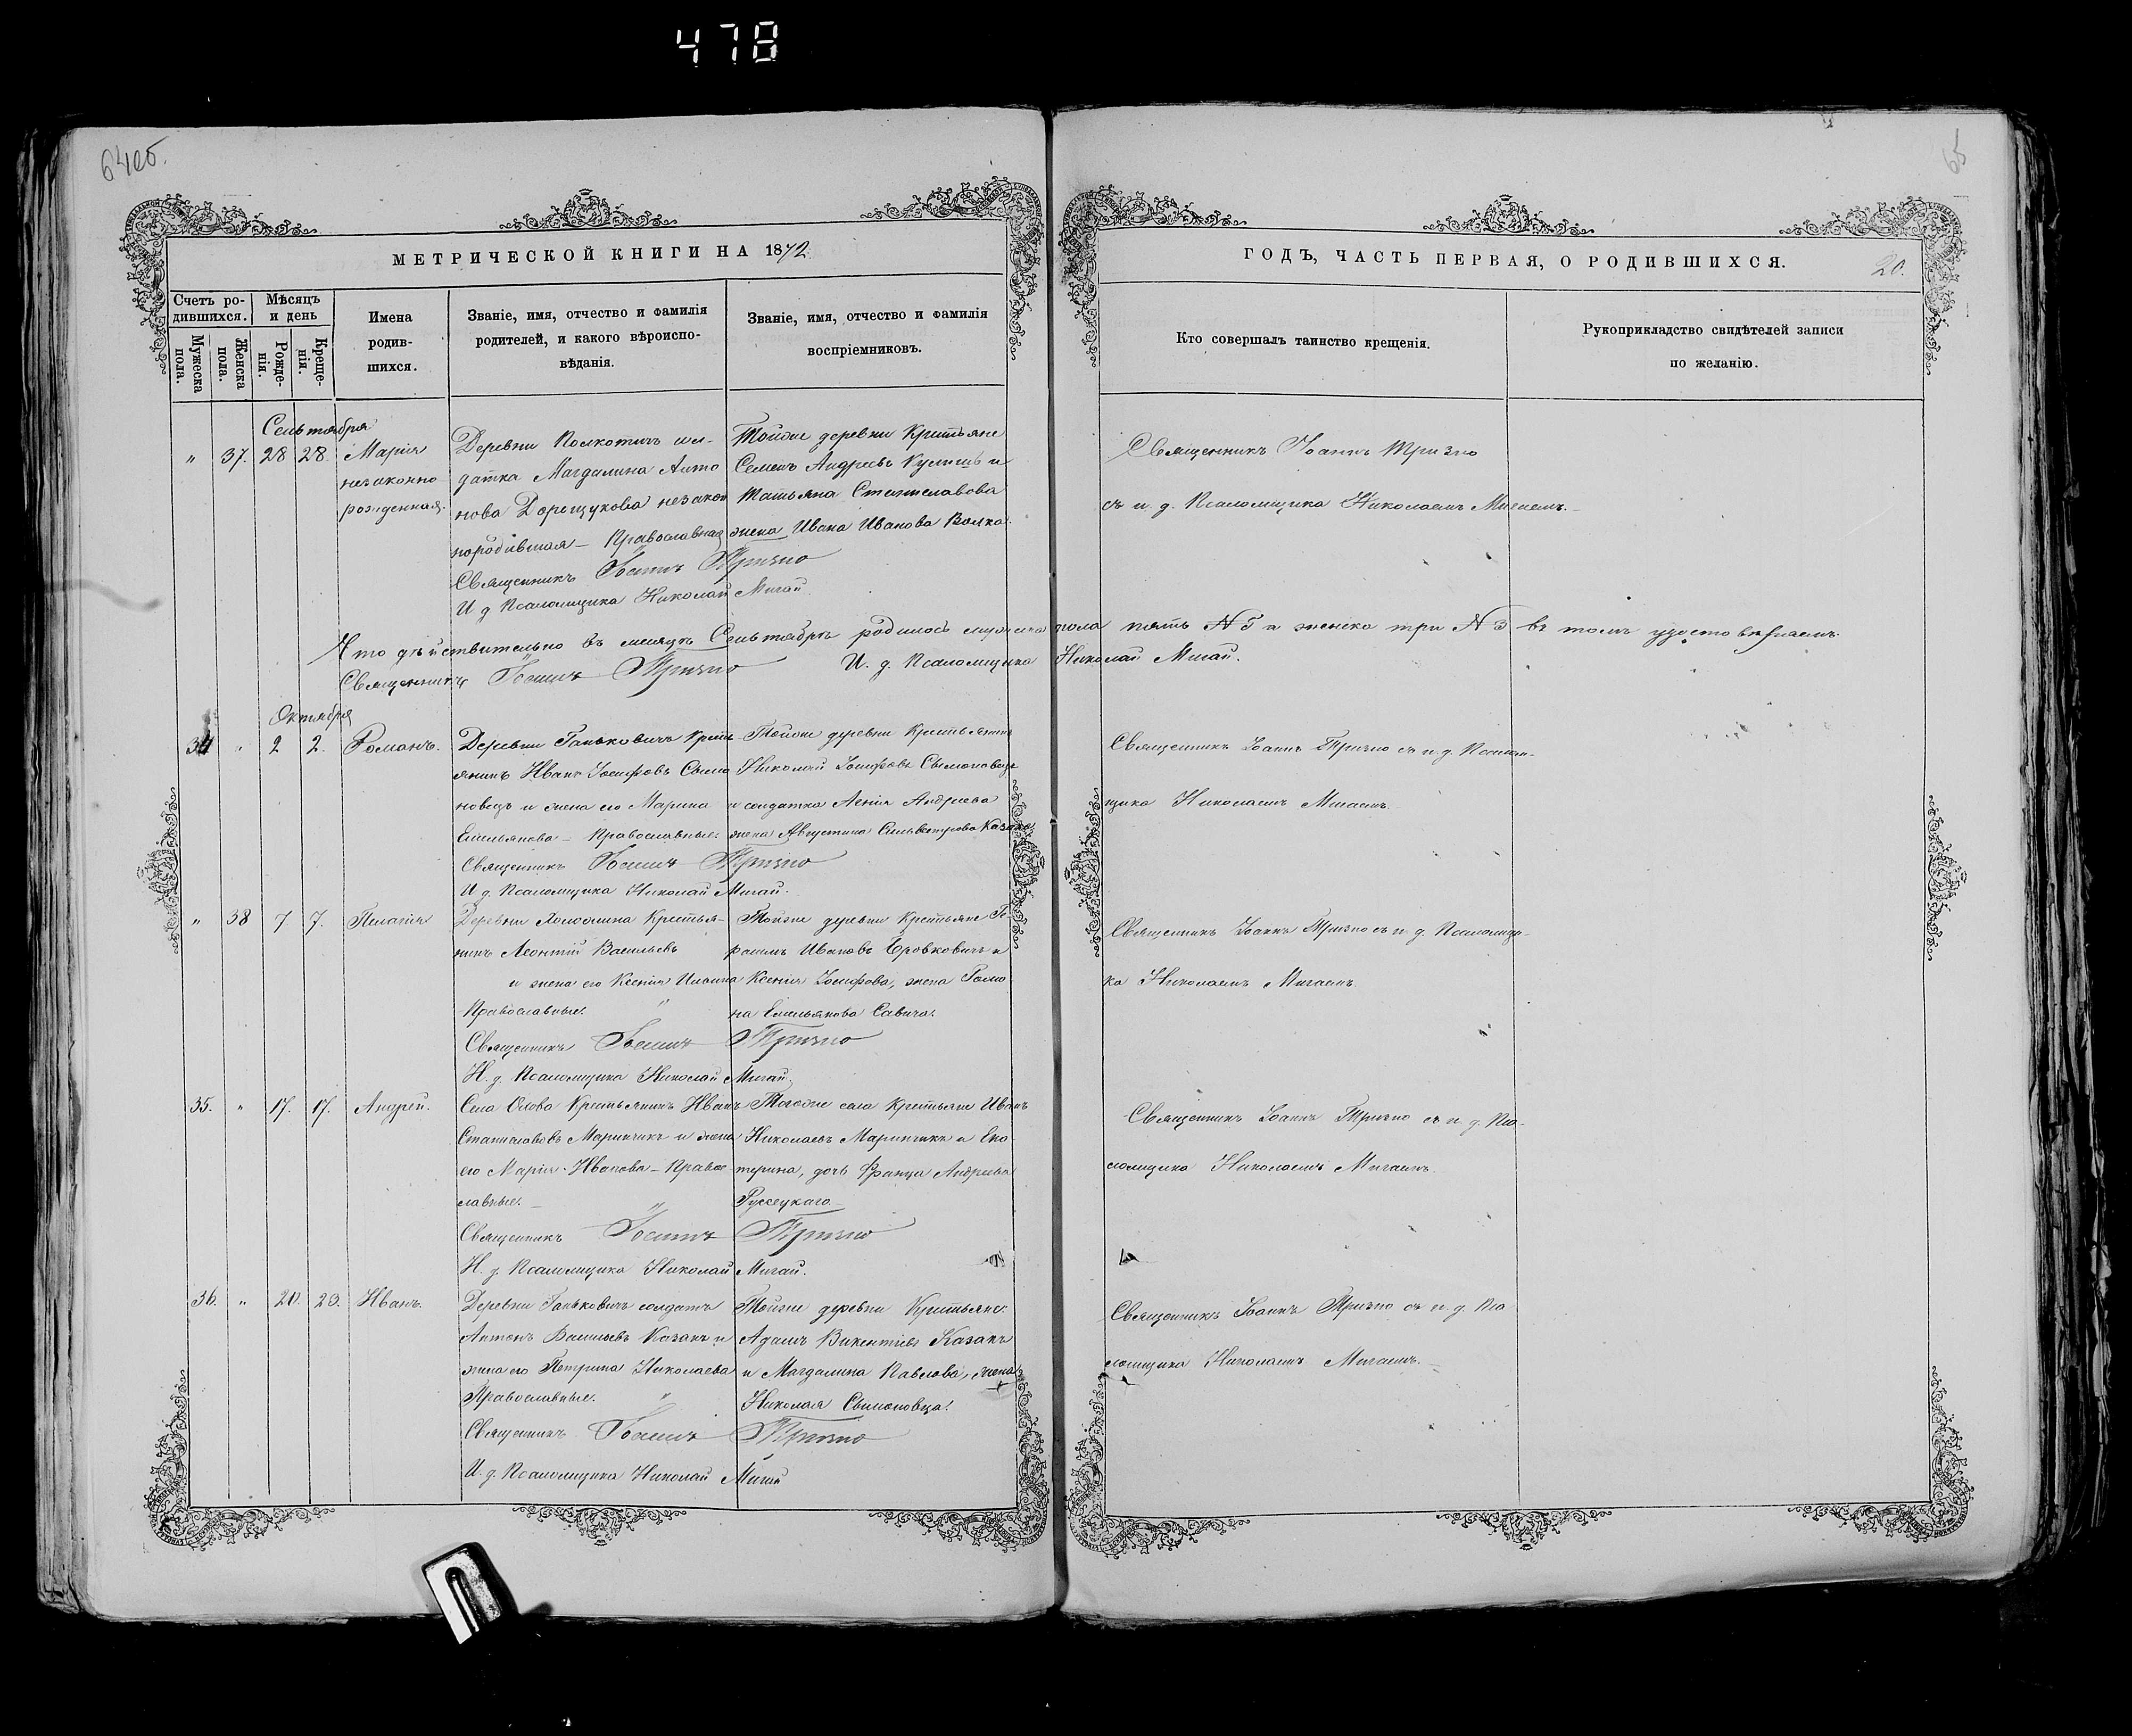 478
64об.
65
МЕТРИЧЕСКОЙ КНИГИ НА 1872
ГОДЪ, ЧАСТЬ ПЕРВАЯ, О РОДИВШИХСЯ.
20.
Счетъ ро-
дившихся.
Мужеска
пола.
Женска
пола.
Мѣсяцъ
и день
Рожде-
нія.
Креще-
нія.
Имена
родив-
шихся.
Званіе, имя, отчество и фамилія
родителей, и какого вѣроиспо-
вѣданія.
Званіе, имя, отчество и фамилія
воспріемниковъ.
Кто совершалъ таинство крещенія.
Рукоприкладство свидѣтелей записи
по желанію.
Сентября
" 37. 28 28. Марія
незаконно
рожденная.
Деревни сол-
датка Магдалина Анто
нова незакон
породившая – Православная
Тойже деревни Крестьяне
Семенъ Андреевъ и
Татьяна Станиславова
жена Ивана Иванова Волка.
Священникъ Іоаннъ Тризно
И. д. Псаломщика Николай Мигай.
Священникъ Іоаннъ Тризно
съ и. д. Псаломщика Николаемъ Мигаемъ.
Что дѣйствительно въ месяцѣ Сентябрѣ родилось мужеска пола пять № 5 и женска три № 3 въ томъ удостовѣряемъ.
Священникъ Іоаннъ Тризно И. д. Псаломщика Николай Мигай.
Октября
34 " 2 2. Романъ.
Деревни Ганьковичъ Крест-
янинъ Иванъ Іосифовъ
новецъ и жена его Марина
Емельянова – Православные.
Тойже деревни Крестьянинъ
Николай Іосифовъ
и солдатка Андреева
жена Августина Сильвестрова Казака
Священникъ Іоаннъ Тризно
И. д. Псаломщика Николай Мигай.
Священникъ Іоаннъ Тризно съ и. д. Псалом-
щика Николаемъ Мигаемъ
" 38 7 7. Пелагія
Деревни Крестья-
нинъ Леонтій Васильевъ
и жена его Ксенія
Православные.
Тойже деревни Крестьяне Ге-
расимъ Ивановъ и
Ксенія Іосифова, жена Рома
на Емельянова Савича.
Священникъ Іоаннъ Тризно
И. д. Псаломщика Николай Мигай.
Священникъ Іоаннъ Тризно съ и. д. Псаломщи-
ка Николаемъ Мигаемъ
35. " 17. 17. Андрей.
Села Олова Крестьянинъ Иванъ
Станиславовъ Маринчикъ и жена
его Марія Иванова – Право
славные. –
Тогоже села Крестьяне Иванъ
Николаевъ Маринчикъ и Ека-
терина, дочь Франца Андреева
Русецкаго
Священникъ Іоаннъ Тризно
И. д. Псаломщика Николай Мигай.
Священникъ Іоаннъ Тризно съ и. д. Пса-
ломщика Николаемъ Мигаемъ
36. " 20. 23. Иванъ.
Деревни Ганьковичъ солдатъ
Антонъ Васильевъ Казакъ и
жена его Петрина Николаева
Православные.
Тойже деревни Крестьяне
Адамъ Викентіевъ Казакъ
и Магдалина Павлова, жена
Николая
Священникъ Іоаннъ Тризно
И. д. Псаломщика Николай Мигай
Священникъ Іоаннъ Тризно съ и. д. Пса
ломщика Николаемъ Мигаемъ. –